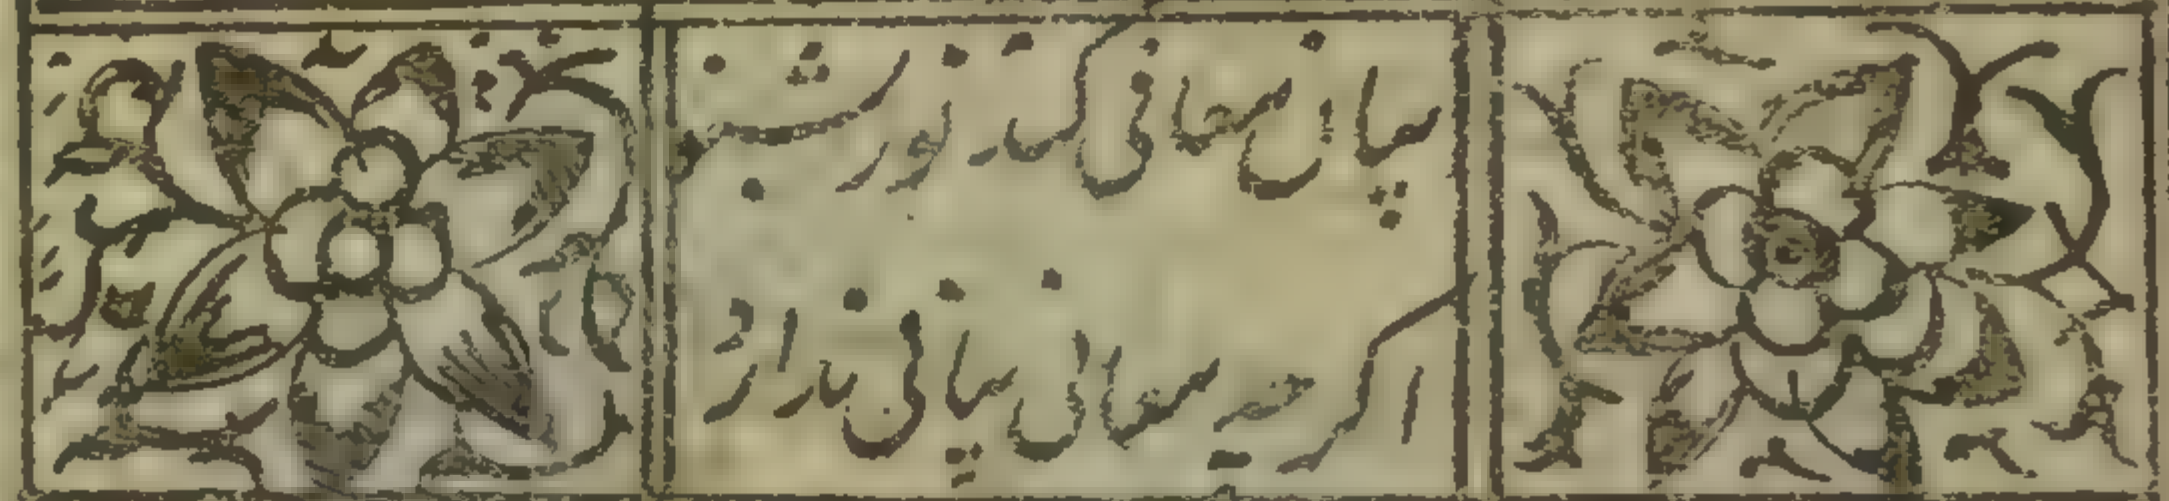 بیان معانی کند نور بخش
اگرچه معانی بیانی ندارد